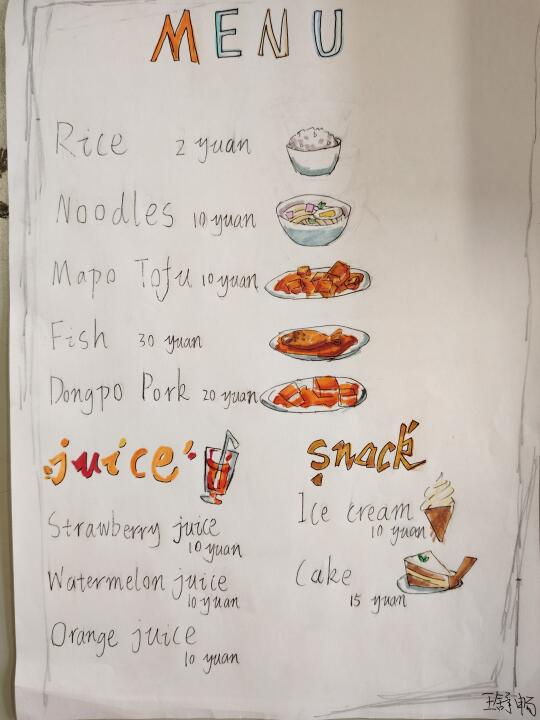 MENU
Rice 2 yuan
Noodles 10 yuan
Mapo Tofu 10 yuan
Fish 30 yuan
Dongpo Pork 20 yuan
juice
Strawberry juice
10 yuan
Watermelon juice
10 yuan
Orange juice
10 yuan
snack
Ice cream
10 yuan
Cake
15 yuan
王舒畅